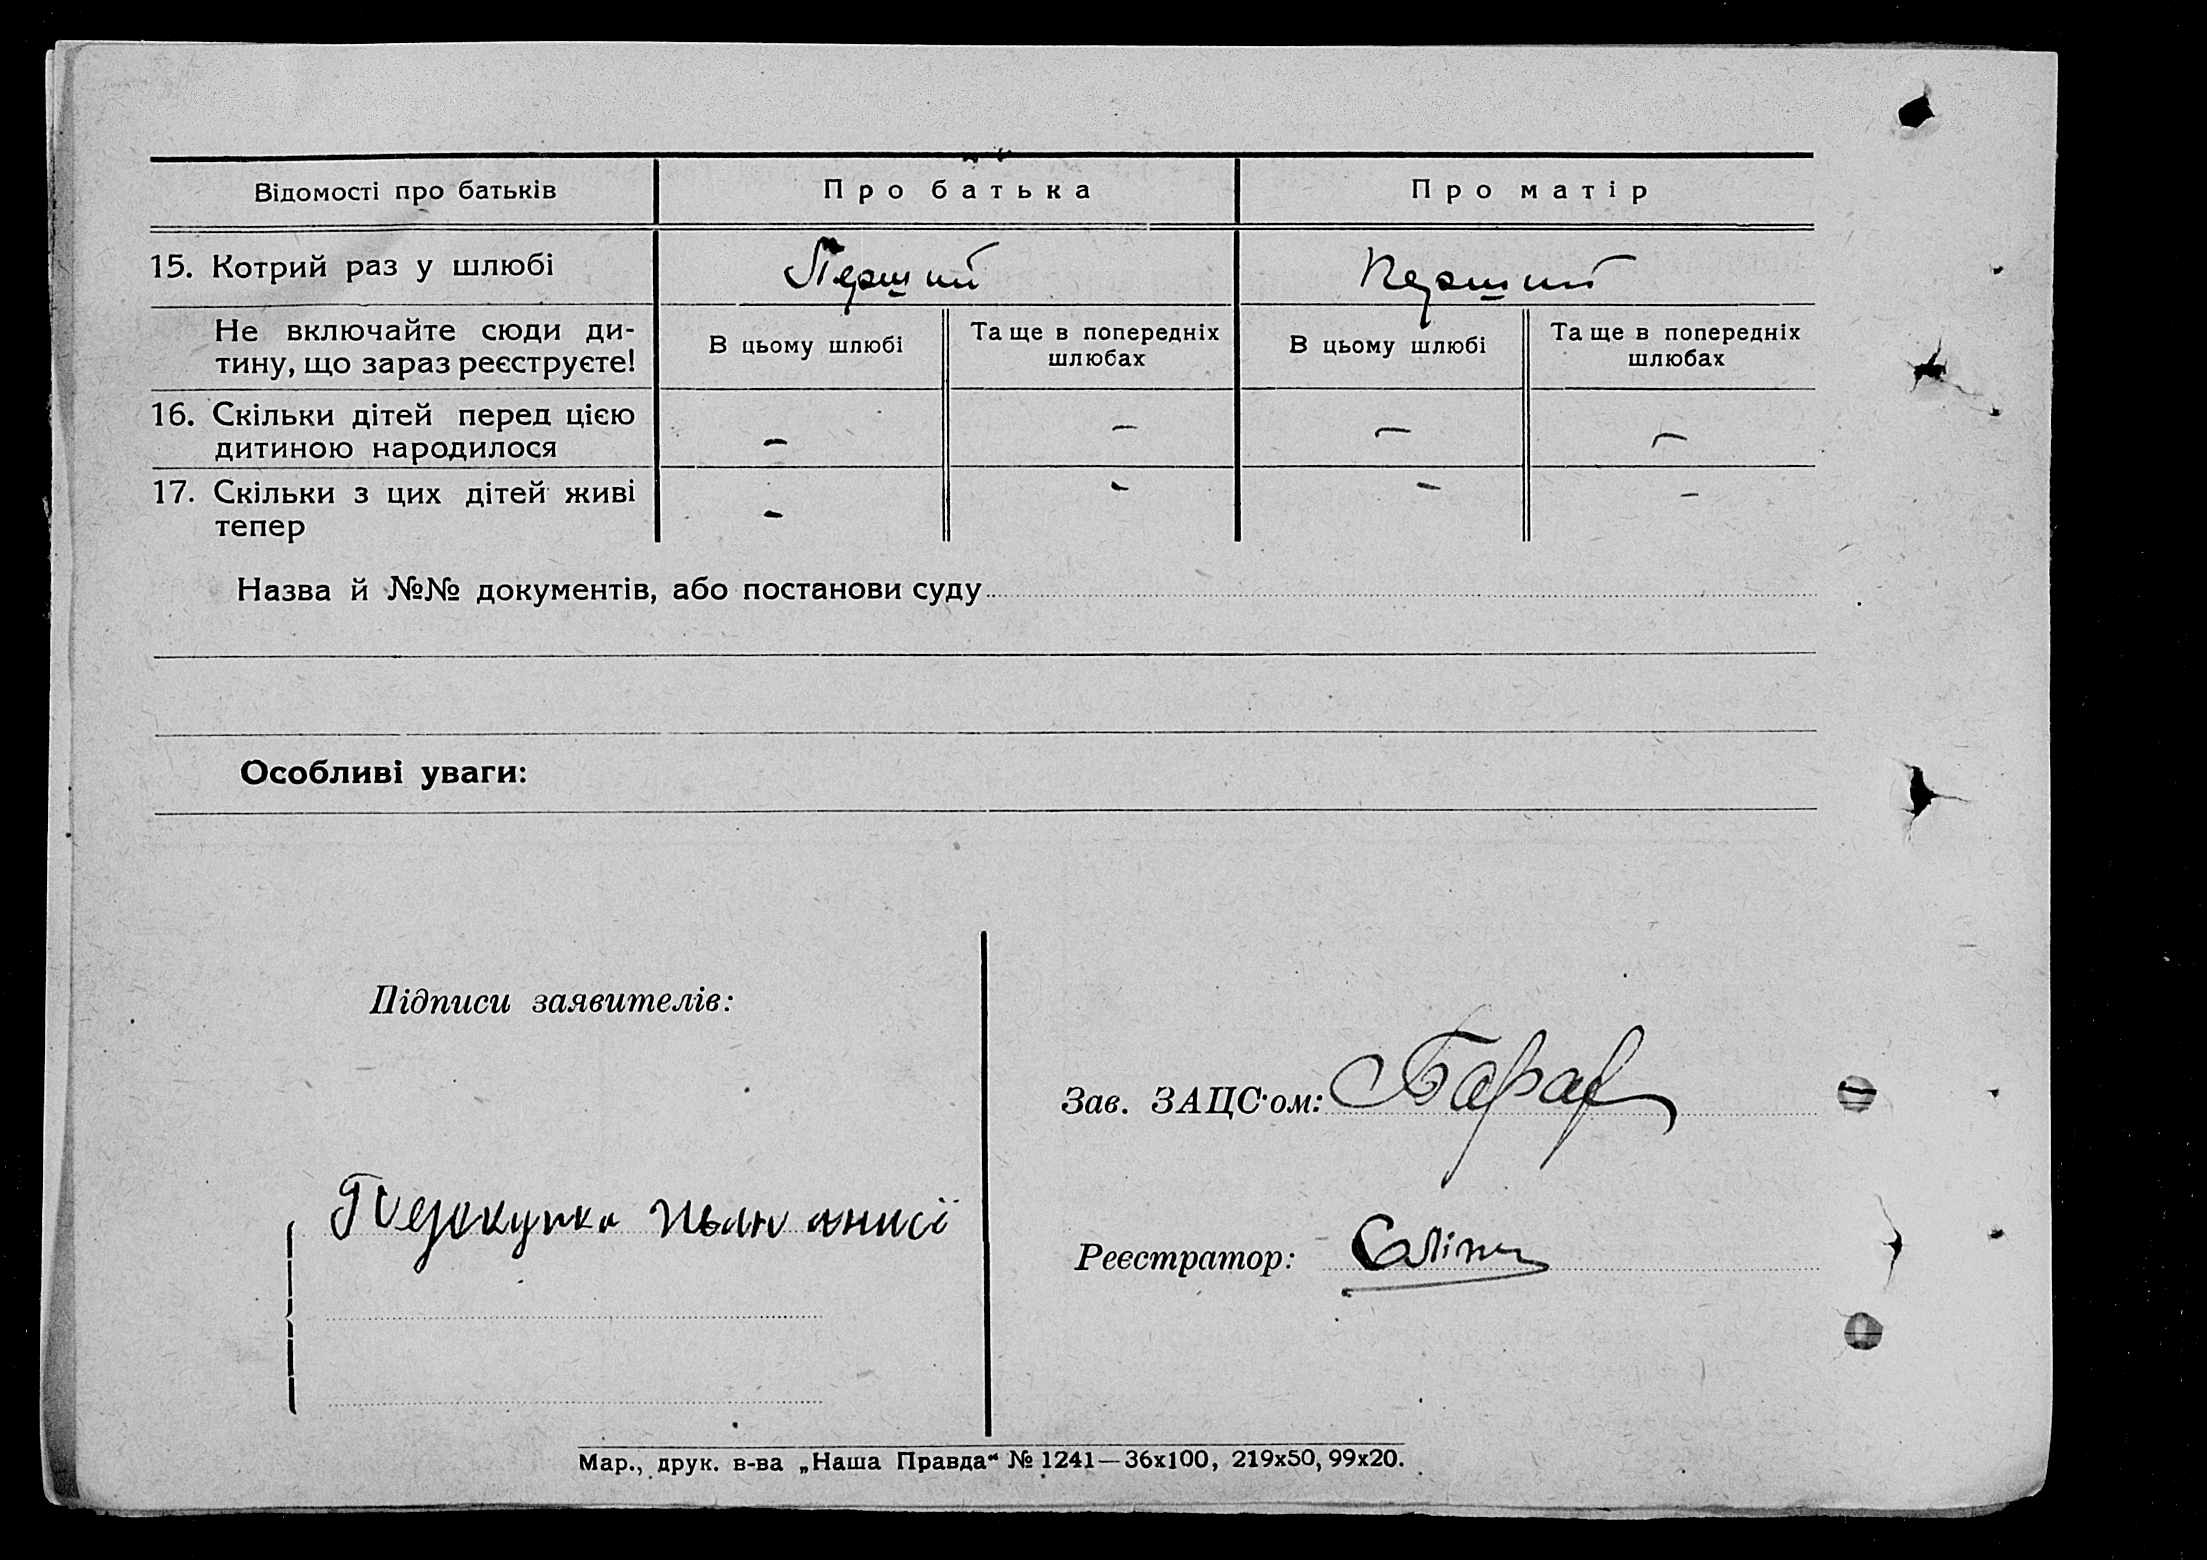 Відомості про батьків Про батька Про матір
15. Котрий раз у шлюбі Перший Перший
Не включайте сюди ди-
тину, що зараз реєструєте!
В цьому шлюбі
Та ще в попередніх
шлюбах
В цьому шлюбі
Та ще в попередніх
шлюбах
16. Скільки дітей перед цією
дитиною народилося
– – – –
17. Скільки з цих дітей живі
тепер
– – – –
Назва й №№ документів, або постанови суду
Особливі уваги:
Підписи заявителів:
Зав. ЗАЦС'ом:
Реєстратор:
Мар., друк. в-ва „Наша Правда“ № 1241—36х100, 219х50, 99х20.